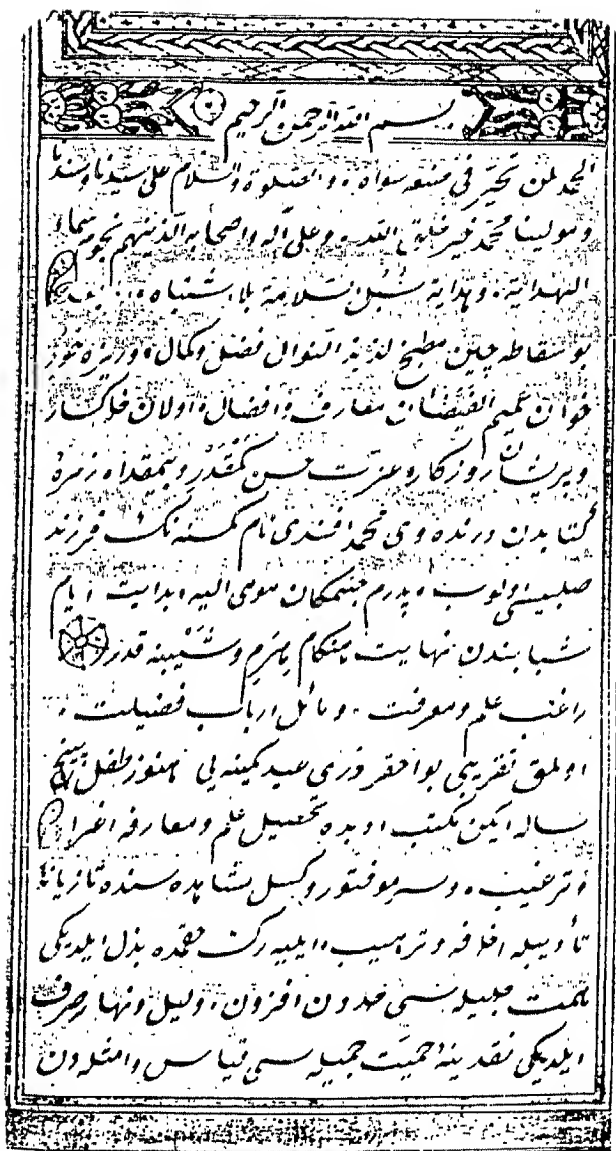 بسم الله الرحمن الرحيم
الحمد لمن تحير في صنعه سواه والصلوة والسلام على سيدنا وسندنا
ومولينا محمد خير خلق الله وعلى آله واصحابه الذينهم نجوم سماء
الهداية وهداية سبل سلامة بلا اشتباه بعد
بو سقاطه چين مطبخ لذيذ النوال فضل وكمال وريزه خور
خوان عميم الفيضان معارف وافضال اولان خاكسار
وپريشان روزكار عزت حسن كمقدر وبيمقداه زمرۀ
كتابدن ورنده وى محمد افندى نام كمسنه نك فرزند
صلبيسى اولوب پدرم جنتمكان مومى اليه بدايت ايام
شبابندن نهايت هنكام هرم وشيبنه قدر
راغب علم ومعرفت ومائل ارباب فضيلت
اولمق تقريبى بو احقر ورى عبد كمينه يى هنوز طفل پنج
ساله ايكن مكتب اوبده تحصيل علم ومعارفه اغرا
وترغيب وسرمو فتور وكسل مشاهده سنده تازيانۀ
تأديبله اخافه وترهيب ايليه رك حقمده بذل ايلديكى
همت جليله سى حددن افزون وليل ونهار صرف
ايلديكى نقدينۀ حميت جميله سى قياس وامثلدن